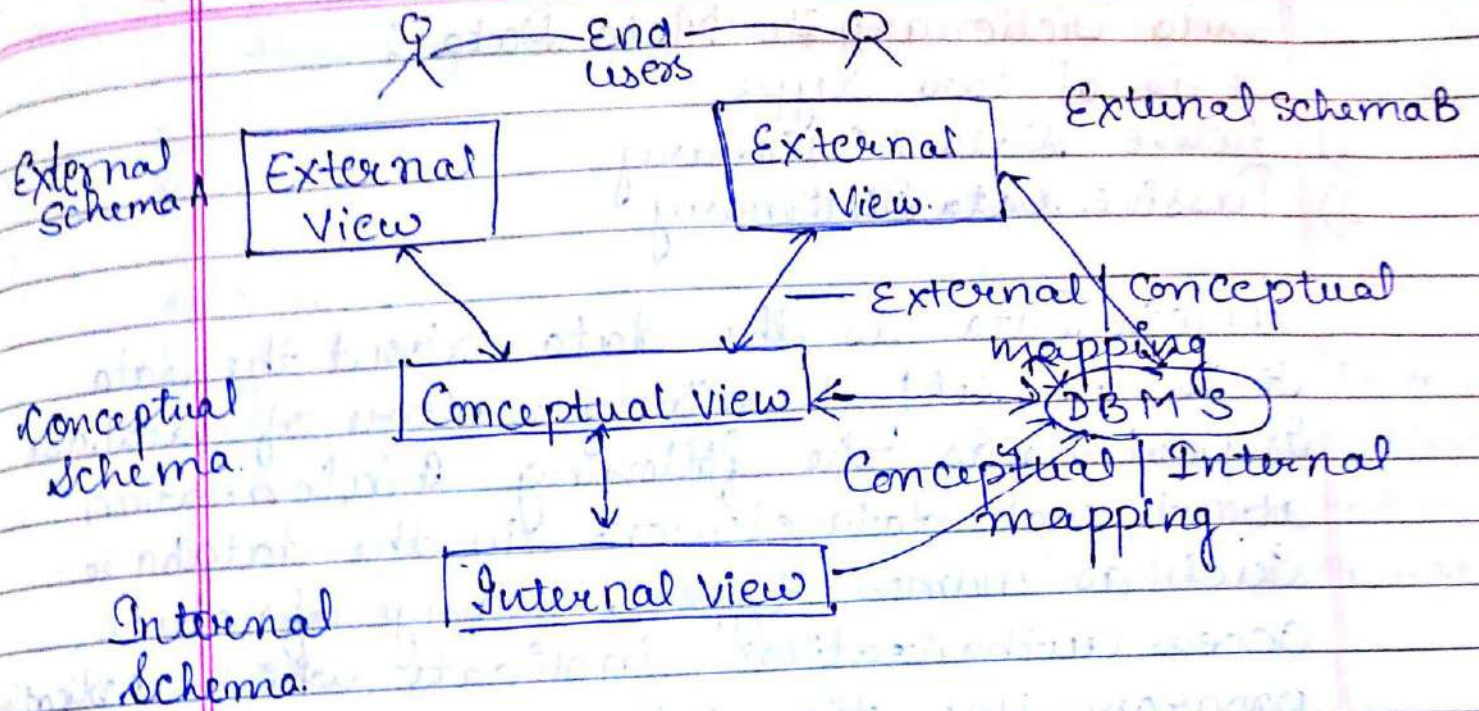 End
users
External
Schema A
External
View
External
View.
External Schema B
External | Conceptual
mapping
Conceptual
Schema.
Conceptual View
DBMS
Conceptual | Internal
mapping.
Internal View
Internal
Schema.